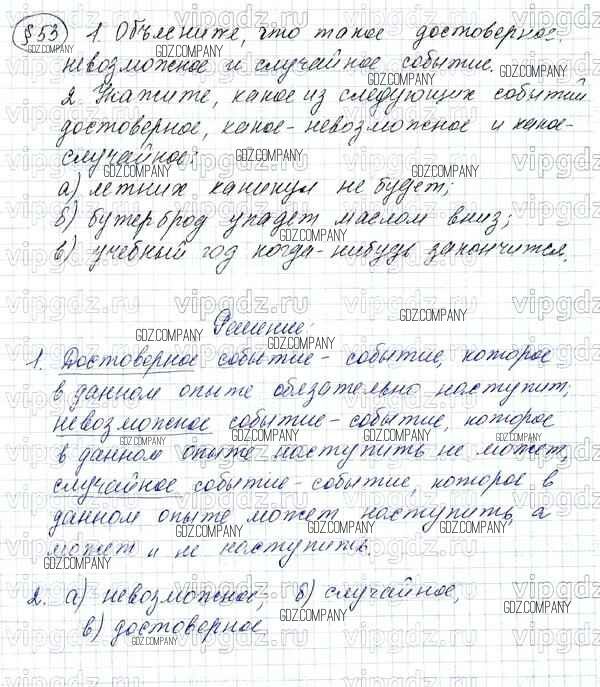 §53 1. Объясните, что такое достоверное,
невозможное и случайное событие.
2. Укажите, какое из следующих событий
достоверное, какое - невозможное и какое -
случайное:
а) летних каникул не будет;
б) бутерброд упадет маслом вниз;
в) учебный год когда-нибудь закончится.
Решение:
1. Достоверное событие - событие, которое
в данном опыте обязательно наступит,
невозможное событие - событие, которое
в данном опыте наступить не может,
случайное событие - событие, которое в
данном опыте может наступить, а
может и не наступить.
2. а) невозможное, б) случайное,
в) достоверное.
GDZ.COMPANY
vipgdz.ru